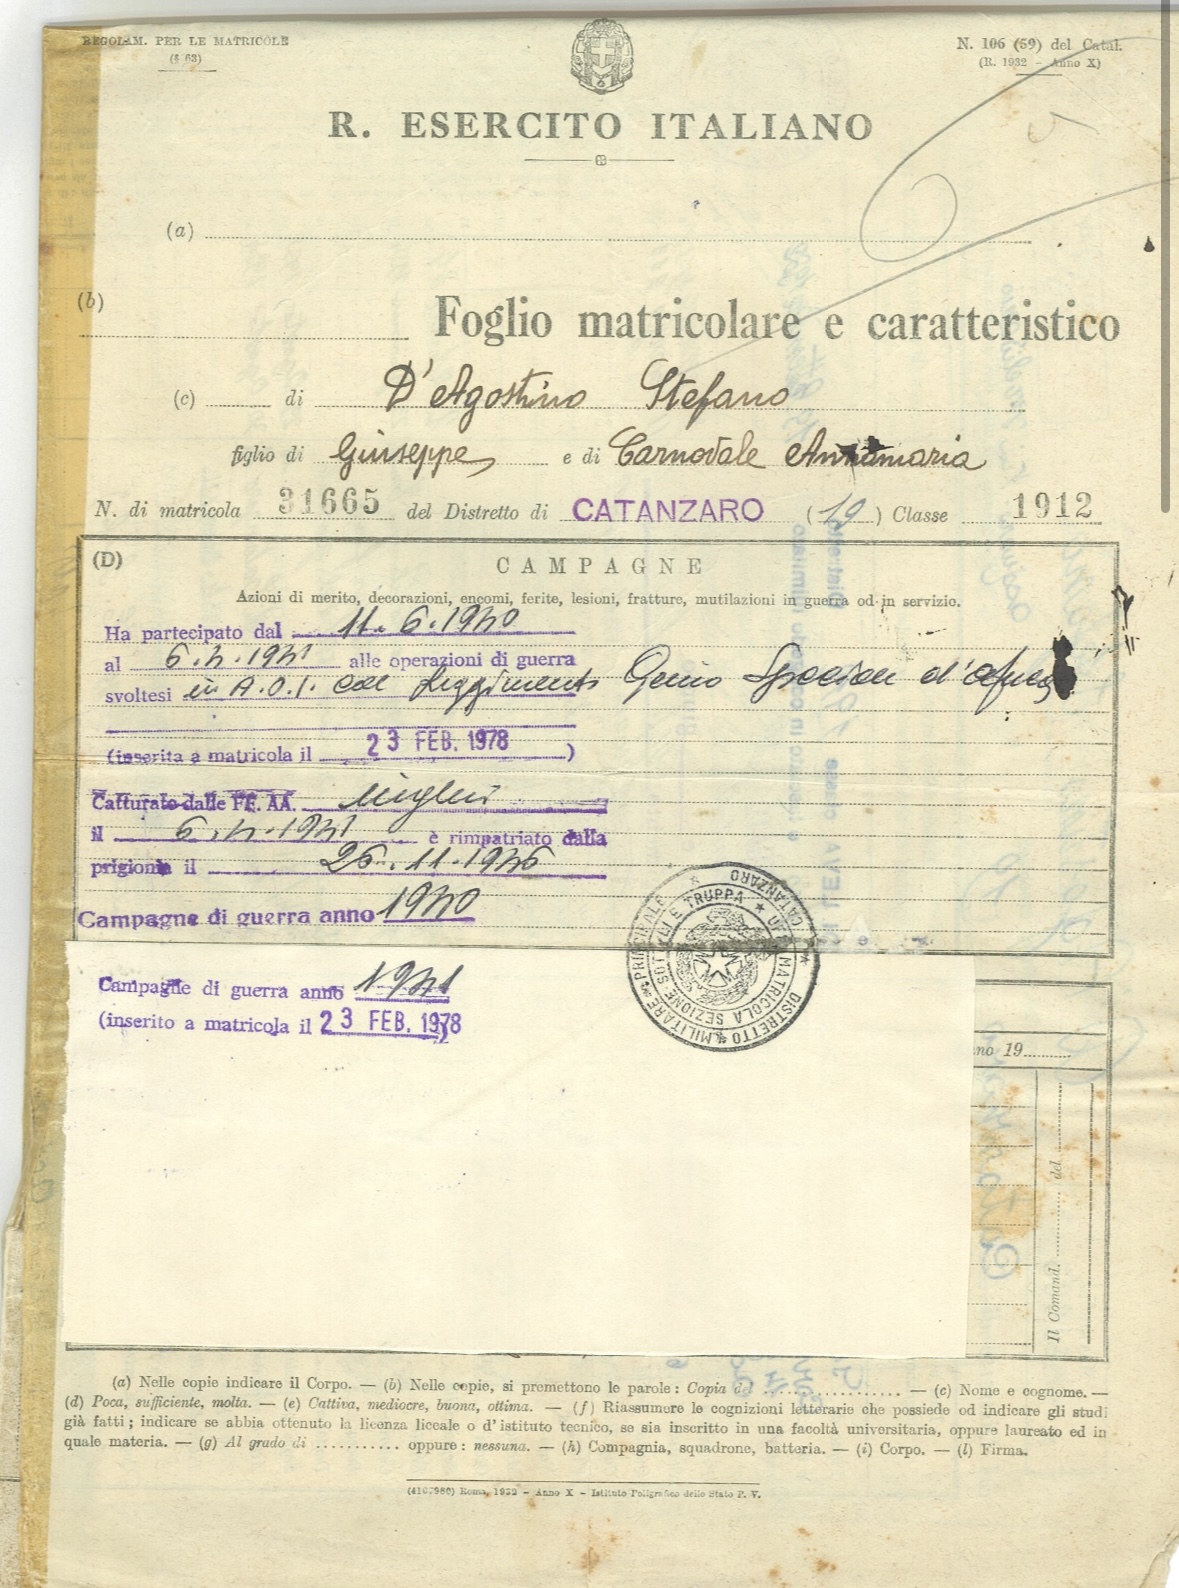 REGOLAM. PER LE MATRICOLE
(§ 63)
N. 106 (59) del Catal.
(R. 1932 - Anno X)
R. ESERCITO ITALIANO
(a)
(b) Foglio matricolare e caratteristico
(c) di D'Agostino Stefano
figlio di Giuseppe e di Carnovale Annamaria
N. di matricola 31665 del Distretto di CATANZARO (19) Classe 1912
(D)
CAMPAGNE
Azioni di merito, decorazioni, encomi, ferite, lesioni, fratture, mutilazioni in guerra od in servizio.
Ha partecipato dal 11.6.1940
al 6.4.1941 alle operazioni di guerra
svoltesi in A.O.I. col Reggimento Genio d'
(inserita a matricola il 23 FEB. 1978)
Catturato dalle FF. AA. inglesi
il 6.4.1941 è rimpatriato dalla
prigionia il 26.11.1946
Campagne di guerra anno 1940
Campagne di guerra anno 1941
(inserito a matricola il 23 FEB. 1978
DISTRETTO MILITARE PRINCIPALE CATANZARO
MATRICOLA SEZIONE SOTT.LI E TRUPPA
nno 19
Il Comand. del
(a) Nelle copie indicare il Corpo. — (b) Nelle copie, si premettono le parole: Copia del .................. — (c) Nome e cognome. —
(d) Poca, sufficiente, molta. — (e) Cattiva, mediocre, buona, ottima. — (f) Riassumere le cognizioni letterarie che possiede od indicare gli studi
già fatti; indicare se abbia ottenuto la licenza liceale o d'istituto tecnico, se sia inscritto in una facoltà universitaria, oppure laureato ed in
quale materia. — (g) Al grado di ........... oppure: nessuna. — (h) Compagnia, squadrone, batteria. — (i) Corpo. — (l) Firma.
Roma, 1932 - Anno X - Istituto Poligrafico dello Stato P. V.